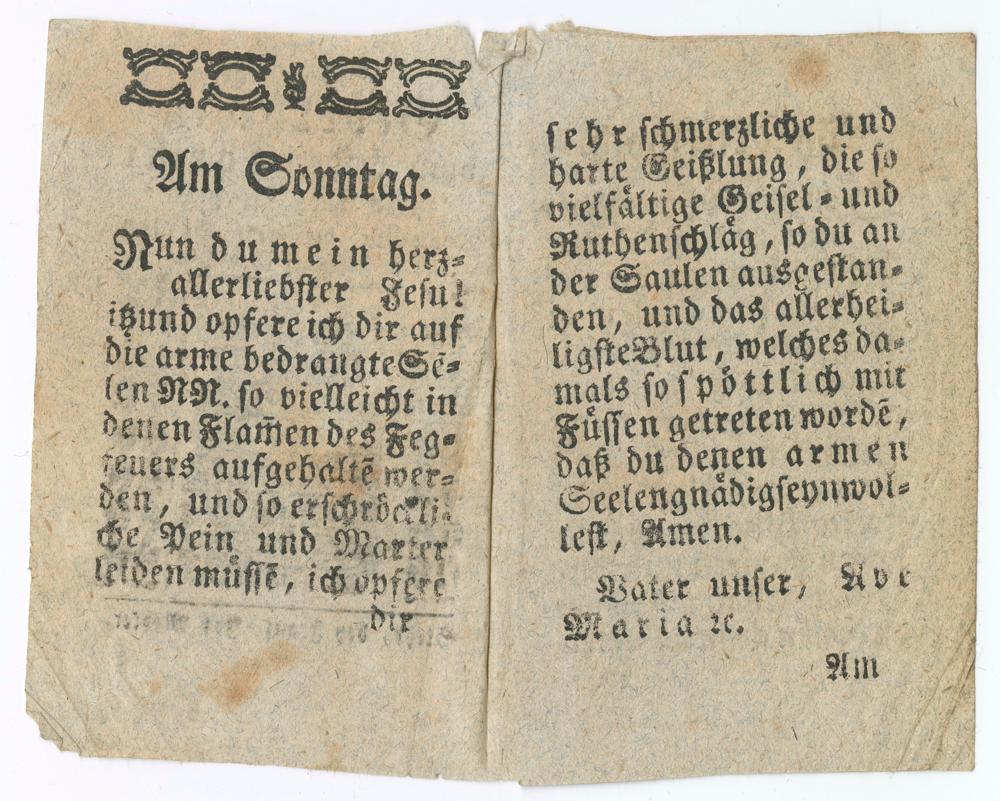 Am Sonntag.
Nun du mein herz-
allerliebster Jesu!
itzund opfere ich dir auf
die arme bedrangte See̅-
len NN. so vielleicht in
denen Flam̅en des Feg-
feuers aufgehalte̅ wer-
den, und so erschröckli-
che Pein und Marter
leiden müsse̅, ich opfere
dir
sehr schmerzliche und
harte Geißlung, die so
vielfältige Geisel- und
Ruthenschläg, so du an
der Saulen ausgestan-
den, und das allerhei-
ligste Blut, welches da-
mals so spöttlich mit
Füssen getreten worde̅,
daß du denen armen
Seelen gnädig seyn wol-
lest, Amen.
Vater unser, Ave
Maria ꝛc.
Am